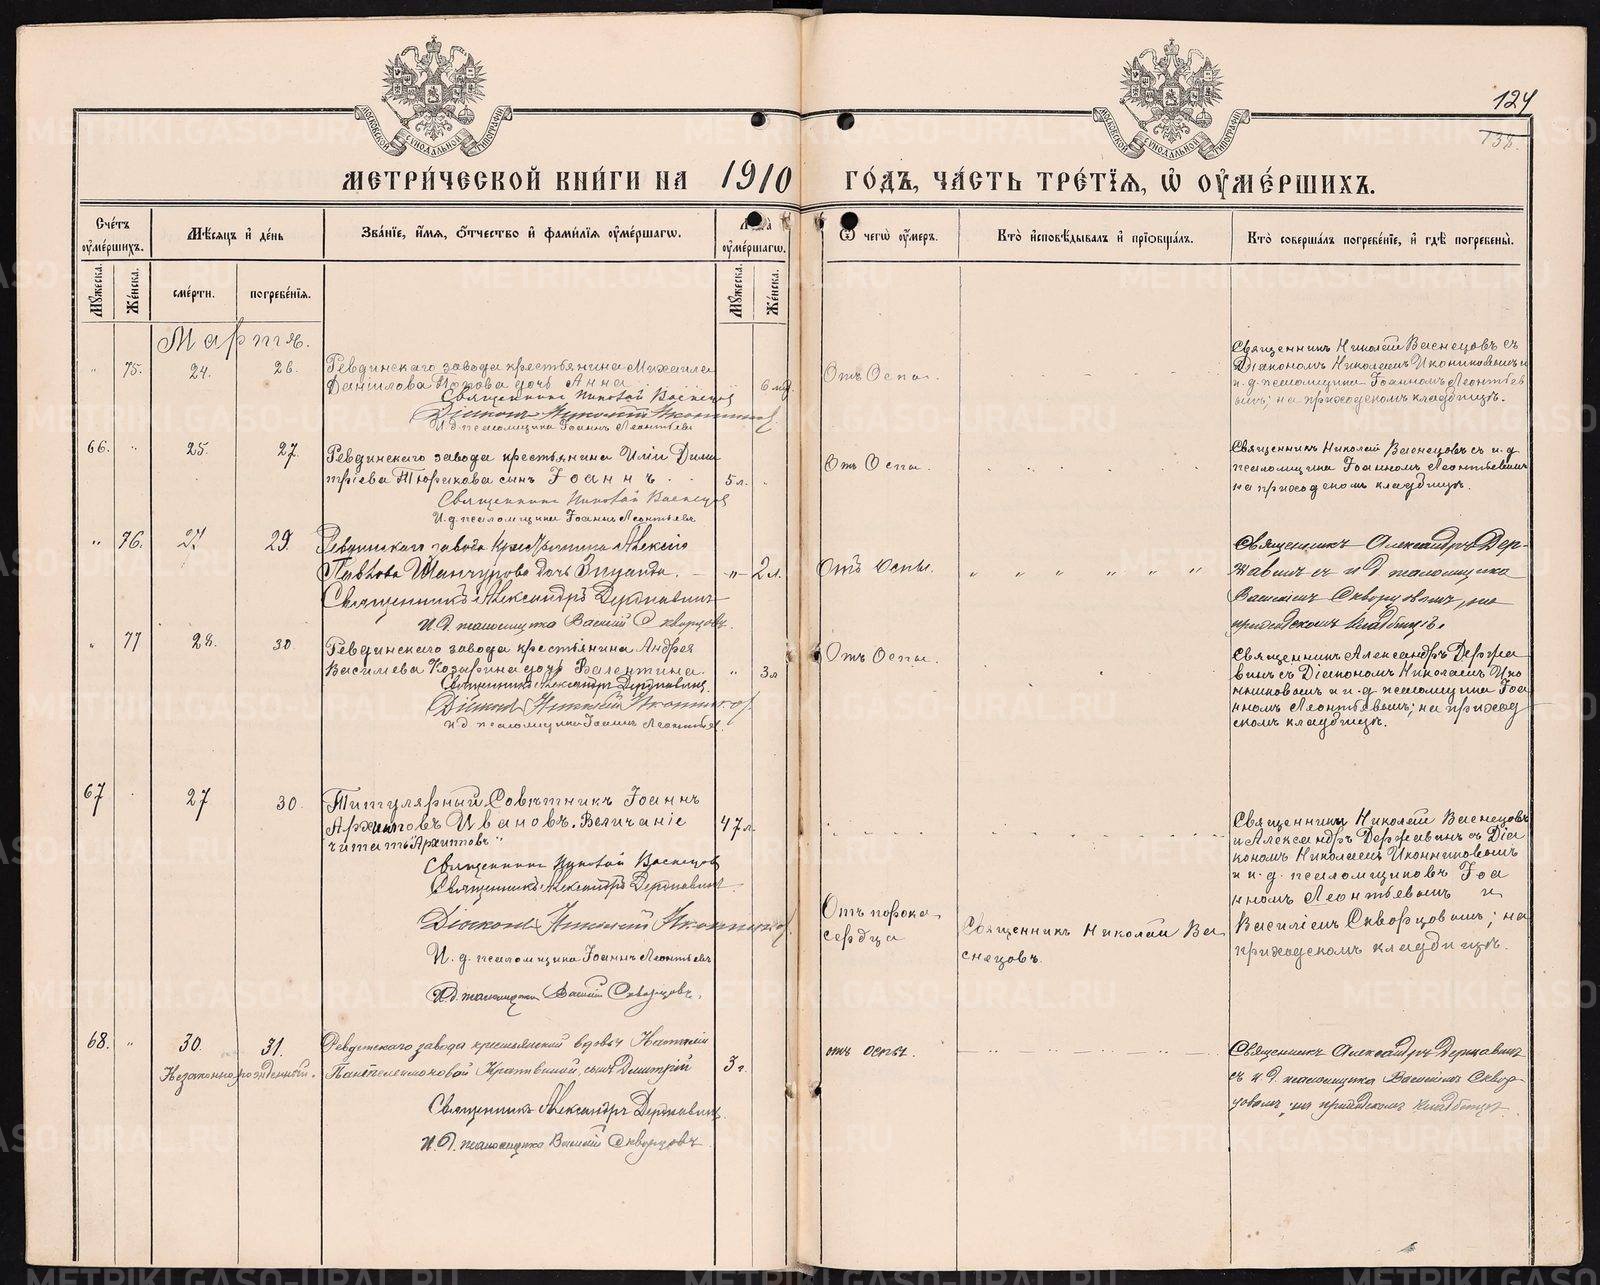 124
138.
МОСКОВСКОЙ СѴНОДАЛЬНОЙ ТИПОГРАФІИ
МОСКОВСКОЙ СѴНОДАЛЬНОЙ ТИПОГРАФІИ
МЕТРИ́ЧЕСКОЙ КНИ́ГИ НА 1910 ГО́ДЪ, ЧА́СТЬ ТРЕ́ТІѦ, Ѡ ОУ҆МЕ́РШИХЪ.
Сче́тъ оу҆ме́ршихъ.
Мꙋ́жеска.
Же́нска.
Мѣ́сѧцъ и҆ де́нь
сме́рти.
погребе́нїѧ.
Зва́нїе, и҆́мѧ, ѻ҆́тчество и҆ фами́лїѧ оу҆ме́ршагѡ.
оу҆ме́ршагѡ.
Мꙋ́жеска.
Же́нска.
Ѿ чегѡ̀ оу҆́меръ.
Кто̀ и҆сповѣ́дывалъ и҆ прїѻбща́лъ.
Кто̀ соверша́лъ погребе́нїе, и҆ гдѣ̀ погребены̀.
Марта.
" 75. 24. 26.
Ревдинскаго завода крестьянина Михаила
Даніилова Попова дочь Анна
6 мц.
Отъ Оспы.
Священникъ Николай Васнецовъ
Діаконъ Николай Иконниковъ
И.д. псаломщика Іоаннъ Леонтьевъ
Священникъ Николай Васнецовъ съ
Діакономъ Николаемъ Иконниковымъ и
и. д. псаломщика Іоанномъ Леонтьев
ымъ; на приходскомъ кладбищѣ.
66. " 25. 27.
Ревдинскаго завода крестьянина Иліи Дими
тріева Тюрикова сынъ Іоаннъ
5 л.
Отъ Оспы.
Священникъ Николай Васнецов
И.д. псаломщика Іоаннъ Леонтьевъ
Священникъ Николай Васнецовъ съ и.д.
псаломщика Іоанномъ Леонтьевымъ
на приходскомъ кладбищѣ.
" 76. 27. 29.
Ревдинскаго завода крестьянина Алексія
Павлова Шанчурова дочь Зинаида.
" 2 л.
Отъ Оспы.
" " " " " "
Священникъ Александръ Державинъ
И.д. псаломщика Василій Скворцовъ.
Священникъ Александръ Дер-
жавинъ съ и.д. псаломщика
Василіемъ Скворцовымъ, на
приходскомъ кладбищѣ.
" 77 28. 30.
Ревдинскаго завода крестьянина Андрея
Васильева Козырина дочь Валентина.
" 3 л
Отъ Оспы.
Священникъ Александръ Державинъ.
Діаконъ Николай Иконников
и.д псаломщика Іоаннъ Леонтьев
Священникъ Александръ Держа
винъ съ Діакономъ Николаемъ Ико
нниковымъ и и.д псаломщика Іоа
нномъ Леонтьевымъ; на приход
скомъ кладбищѣ.
67 27 30.
Титулярный Совѣтникъ Іоаннъ
Архиповъ Ивановъ. Величаніе
читать "Архиповъ"
47 л.
Отъ порока
сердца
Священникъ Николай Ва
снецовъ.
Священникъ Николай Васнецов
Священникъ Александръ Державинъ
Діаконъ Николай Иконников
И. д. псаломщика Іоаннъ Леонтьевъ
И.д. псаломщика Василій Скворцовъ.
Священники Николай Васнецовъ
и Александръ Державинъ съ Діа
кономъ Николаемъ Иконниковымъ
и и.д. псаломщиковъ Іоа
нномъ Леонтьевымъ и
Василіемъ Скворцовымъ; на
приходскомъ кладбищѣ.
68. " 30. 31.
Незаконнорожденный.
Ревдинскаго завода крестьянской вдовы Наталіи
Пантелеимоновой сынъ Димитрій
3 г.
отъ оспы.
Священникъ Александръ Державинъ.
И.д. псаломщика Василій Скворцовъ.
Священникъ Александръ Державинъ
съ и.д. псаломщика Василіемъ Сквор-
цовымъ, на приходскомъ кладбищѣ.